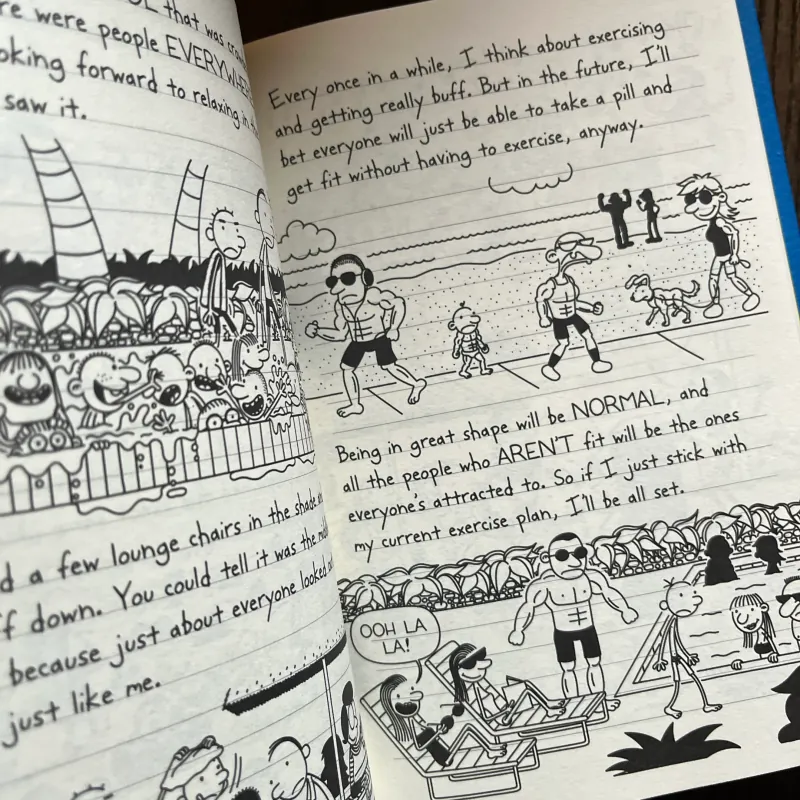 that was
re were people
oking forward to relaxing in
saw it.
d a few lounge chairs in the shade
ff down. You could tell it was the
because just about everyone looked
just like me.
Every once in a while, I think about exercising
and getting really buff. But in the future, I'll
bet everyone will just be able to take a pill and
get fit without having to exercise, anyway.
Being in great shape will be NORMAL, and
all the people who AREN'T fit will be the ones
everyone's attracted to. So if I just stick with
my current exercise plan, I'll be all set.
OOH LA
LA!